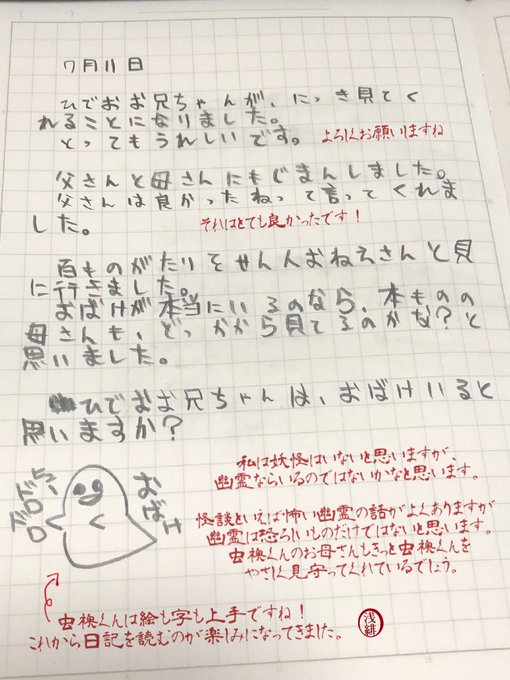 7月11日
ひでおお兄ちゃんが、にっき見てく
れることになりました。
とってもうれしいです。
よろしくお願いしますね
父さんと母さんにもじまんしました。
父さんは良かったねって言ってくれま
した。
それはとても良かったです！
百ものがたりをせん人おねえさんと見
に行きました。
おばけが本当にいるのなら、本ものの
母さんも、どっかから見てるのかな？と
思いました。
ひでおお兄ちゃんは、おばけいると
思いますか？
私は妖怪はいないと思いますが、
幽霊ならいるのではないかなと思います。
怪談といえば怖い幽霊の話がよくありますが
幽霊は恐ろしいものだけではないと思います。
虫襖くんのお母さんもきっと虫襖くんを
やさしく見守ってくれているでしょう。
おばけ
ドロドロ
虫襖くんは絵も字も上手ですね！
これから日記を読むのが楽しみになってきました。
浅緋